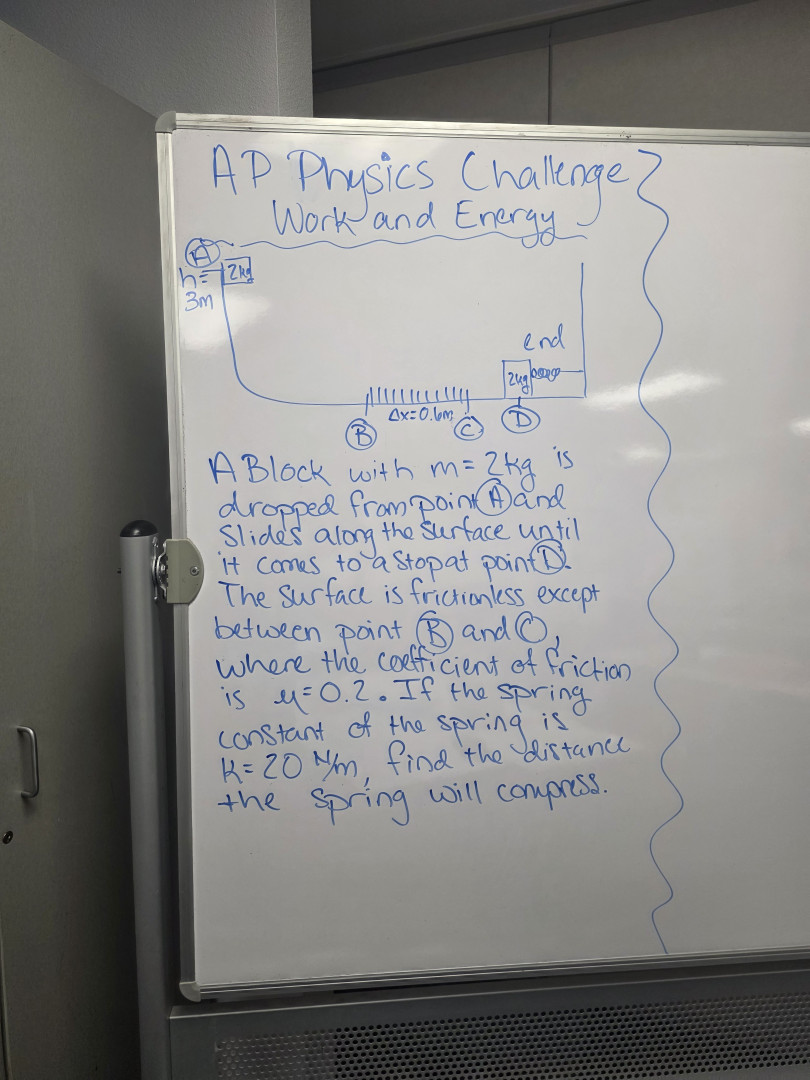 AP Physics Challenge
Work and Energy
A
h=
3m
2kg
end
2kg
Δx=0.6m
B
C
D
A Block with m= 2kg is
dropped from point A and
slides along the surface until
it comes to a stop at point D.
The surface is frictionless except
between point B and C,
where the coefficient of friction
is μ=0.2. If the spring
constant of the spring is
k= 20 N/m, find the distance
the spring will compress.